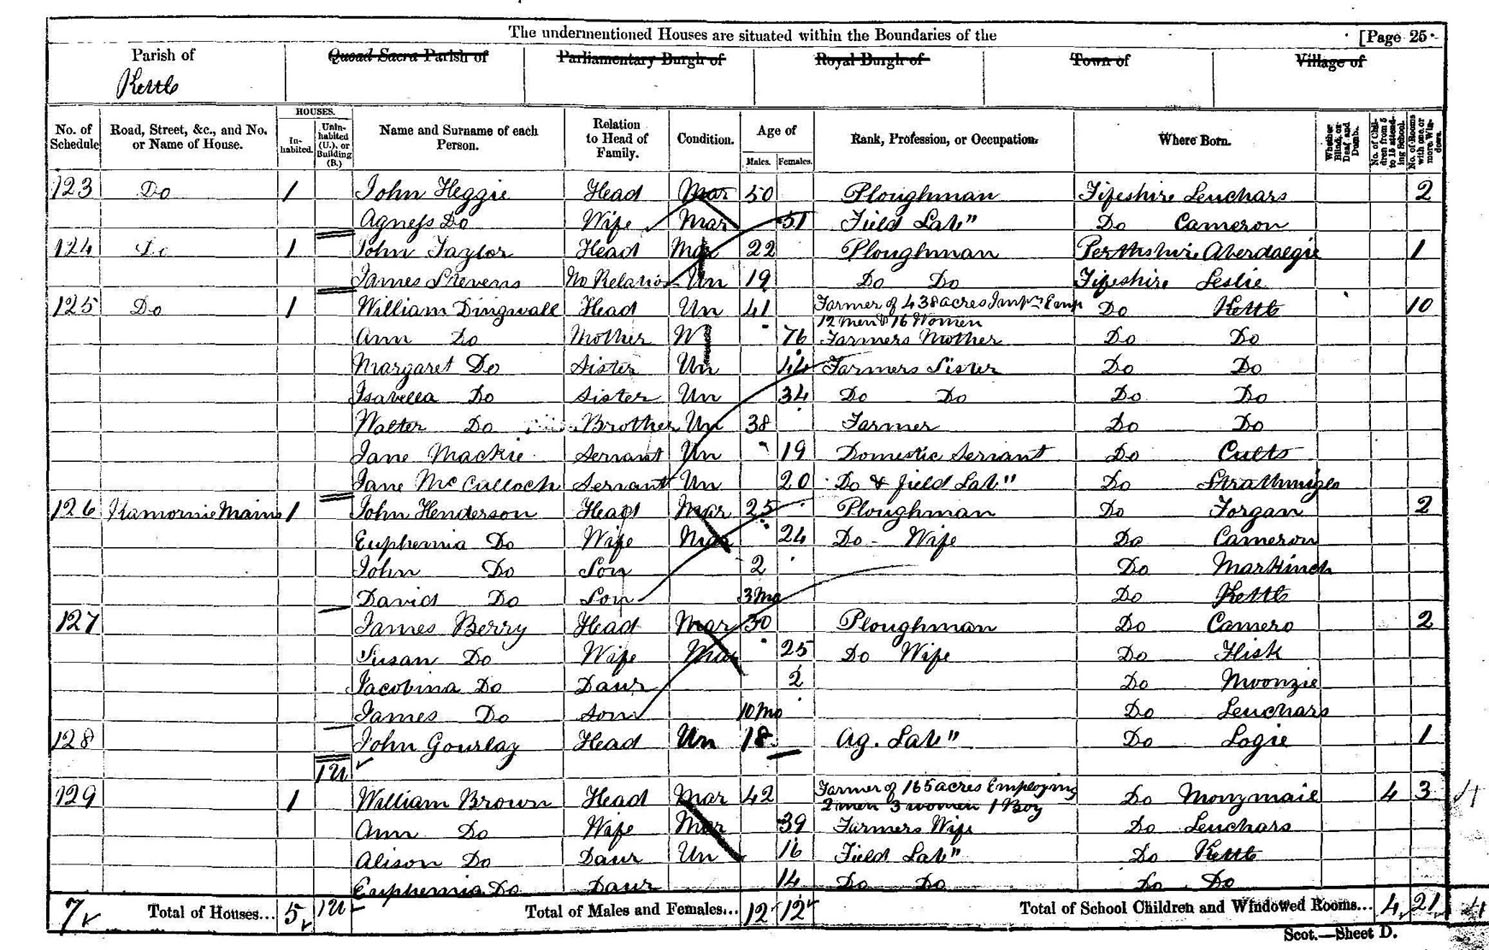 The undermentioned Houses are situated within the Boundaries of the [Page 25.
Parish of Quoad Sacra Parish of Parliamentary Burgh of Royal Burgh of Town of Village of
Kettle
No. of Schedule Road, Street, &c., and No. or Name of House. HOUSES. Inhabited. Uninhabited (U.), or Building (B.) Name and Surname of each Person. Relation to Head of Family. Condition. Age of Males. Females. Rank, Profession, or Occupation. Where Born. Whether Blind, or Deaf and Dumb. No. of Children from 5 to 15 attending School. No. of Rooms with one or more Windows.
123 Do 1 John Heggie Head Mar 50 Ploughman Fifeshire Leuchars 2
Agness Do Wife Mar 51 Field Lab" Do Cameron
124 Do 1 John Taylor Head Mar 22 Ploughman Perthshire Aberdalgie 1
James Stevens No Relation Un 19 Do Do Fifeshire Leslie
125 Do 1 William Dingwall Head Un 41 Farmer of 438 acres Emp 12 men & 16 Women Do Kettle 10
Ann Do Mother W 76 Farmers Mother Do Do
Margaret Do Sister Un 44 Farmers Sister Do Do
Isabella Do Sister Un 34 Do Do Do Do
Walter Do Brother Un 38 Farmer Do Do
Jane Mackie Servant Un 19 Domestic Servant Do Cults
Jane McCulloch Servant Un 20 Do & field Lab" Do Strathmiglo
126 Ramornie Mains 1 John Henderson Head Mar 25 Ploughman Do Forgan 2
Euphemia Do Wife Mar 24 Do - Wife Do Cameron
John Do Son 2 Do Markinch
David Do Son 3 Mo Do Kettle
127 James Berry Head Mar 30 Ploughman Do Camero 2
Susan Do Wife Mar 25 Do Wife Do Flisk
Jacobina Do Daur 2 Do Moonzie
James Do Son 10 Mo Do Leuchars
128 John Gourlay Head Un 18 Ag. Lab" Do Logie 1
1U
129 1 William Brown Head Mar 42 Farmer of 165 acres Employing 2 men 3 women 1 Boy Do Monzmail 4 3 4
Ann Do Wife Mar 39 Farmers Wife Do Leuchars
Alison Do Daur Un 16 Field Lab" Do Kettle
Euphemia Do Daur 14 Do Do Do Do
7 Total of Houses... 5 1U Total of Males and Females... 12 12 Total of School Children and Windowed Rooms... 4 21 4
Scot.—Sheet D.